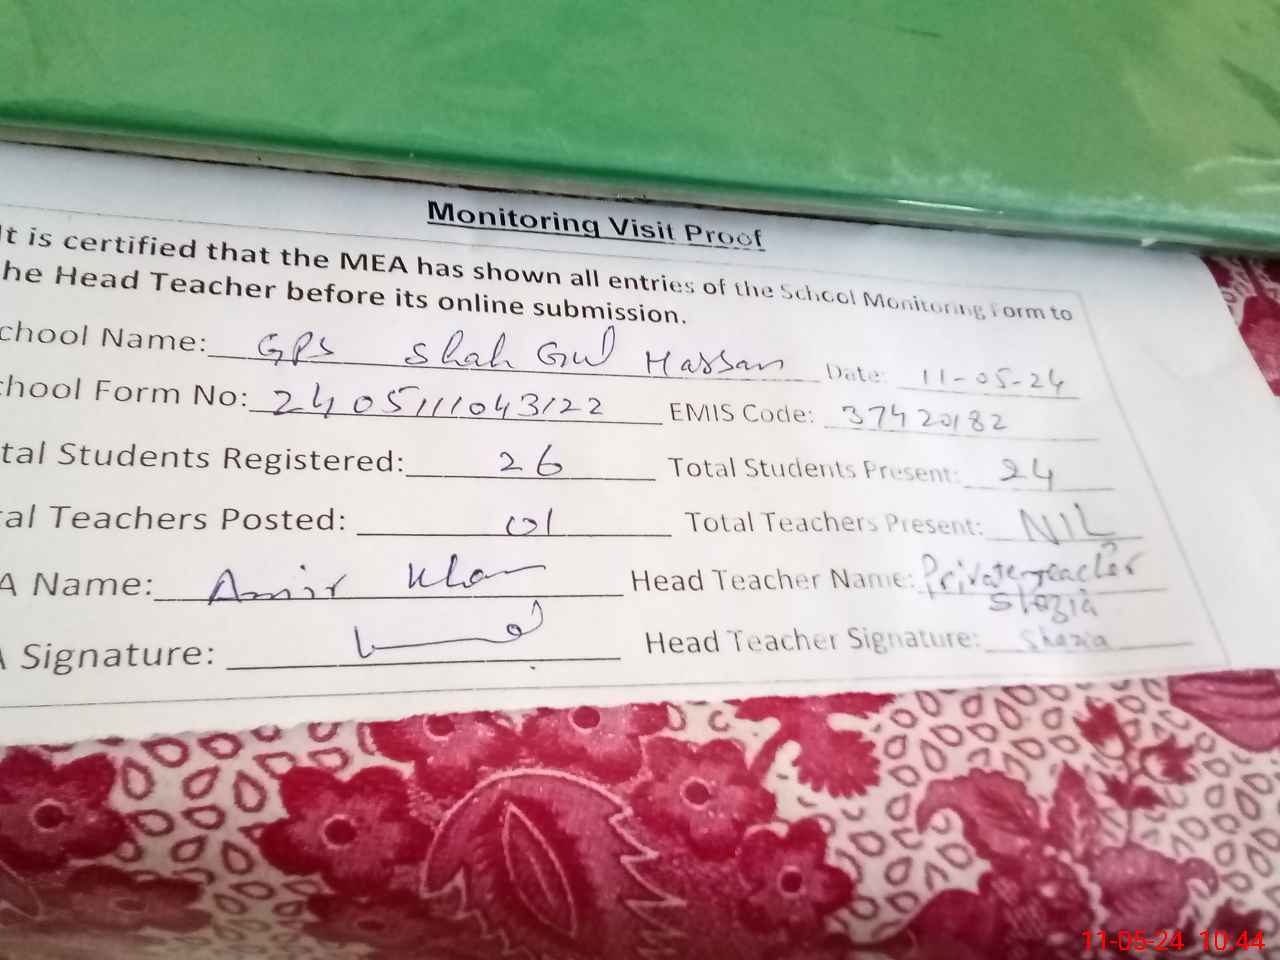 Monitoring Visit Proof
It is certified that the MEA has shown all entries of the School Monitoring Form to
he Head Teacher before its online submission.
chool Name: GPS Shah Gul Hassan Date: 11-05-24
chool Form No: 2405111043122 EMIS Code: 37420182
tal Students Registered: 26 Total Students Present: 24
al Teachers Posted: 01 Total Teachers Present: NIL
A Name: Amir Khan Head Teacher Name: Private teacher
Shazia
A Signature: Head Teacher Signature: Shazia
11-05-24 10:44